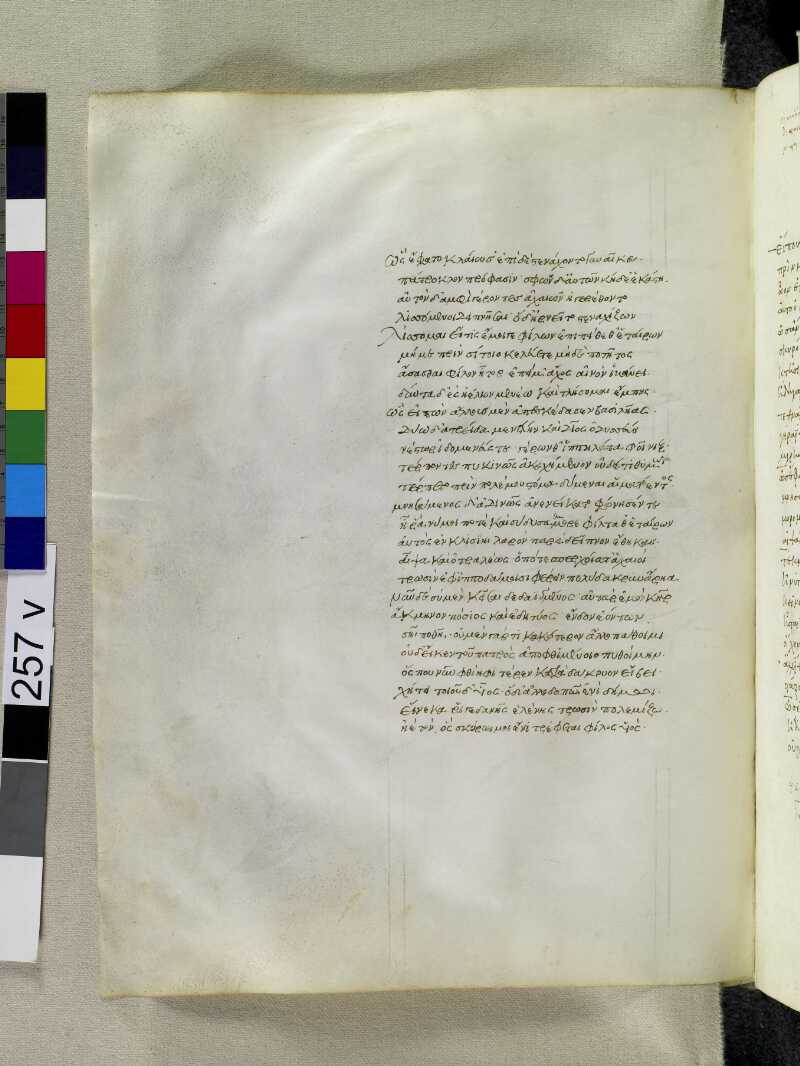 ὣς ἔφατο κλαίουσ' ἐπὶ δὲ στενάχοντο γυναῖκες·
πάτροκλον πρόφασιν· σφῶν δ' αὐτῶν κήδε' ἑκάστη.
αὐτὸν δ' ἀμφὶ γέροντες ἀχαιῶν ἠγερέθοντο
λισσόμενοι δειπνῆσαι· ὁ δ' ἠρνεῖτο στεναχίζων
λίσσομαι εἴ τις ἔμοιγε φίλων ἐπιπείθεθ' ἑταίρων
μή με πρὶν σίτοιο κελεύετε μηδὲ ποτῆτος
ἄσασθαι φίλον ἦτορ ἐπεί μ' ἄχος αἰνὸν ἱκάνει·
δύντα δ' ἐς ἠέλιον μενέω καὶ τλήσομαι ἔμπης·
ὣς εἰπὼν ἄλλους μὲν ἀπεσκέδασεν βασιλῆας·
δύω δ' ἀτρεῖδα μενέτην καὶ δῖος ὀδυσσεύς
νέστωρ ἰδομενεύς τε γέρων θ' ἱππηλάτα φοῖνιξ·
τέρποντες πυκινῶς ἀκαχήμενον οὐδέ τι θυμῷ
τέρπετο πρὶν πολέμου στόμα δύμεναι αἱματόεντος
μνησάμενος δ' ἁδινῶς ἀνενείκατο φώνησέν τε
ἦ ῥά νύ μοι ποτὲ καὶ σὺ δυσάμμορε φίλταθ' ἑταίρων
αὐτὸς ἐνὶ κλισίῃ λαρὸν παρὰ δεῖπνον ἔθηκας·
αἶψα καὶ ὀτραλέως· ὁπότε σπερχοίατ' ἀχαιοί
τρωσὶν ἐφ' ἱπποδάμοισι φέρειν πολύδακρυν ἄρηα·
νῦν δὲ σὺ μὲν κεῖσαι δεδαϊγμένος· αὐτὰρ ἐμὸν κῆρ
ἄκμηνον πόσιος καὶ ἐδητύος· ἔνδον ἐόντων
σῇ ποθῇ· οὐ μὲν γάρ τι κακώτερον ἄλλο πάθοιμι
οὐδ' εἴ κεν τοῦ πατρὸς ἀποφθιμένοιο πυθοίμην·
ὅς που νῦν φθίηφι τέρεν κατὰ δάκρυον εἴβει
χήτεϊ τοιοῦδ' υἷος· ὃ δ' ἀλλοδαπῷ ἐνὶ δήμῳ·
εἵνεκα ῥιγεδανῆς ἑλένης τρωσὶν πολεμίζω.
ἠὲ τὸν ὃς σκύρῳ μοι ἔνι τρέφεται φίλος υἱός·
257 v